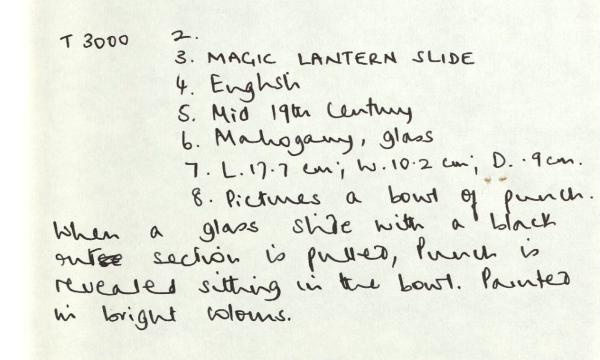 T 3000 2.
3. MAGIC LANTERN SLIDE
4. English
5. Mid 19th Century
6. Mahogany, glass
7. L. 17.7 cm; W. 10.2 cm; D. .9 cm.
8. Pictures a bowl of punch.
When a glass slide with a black
section is pulled, Punch is
revealed sitting in the bowl. Painted
in bright colours.